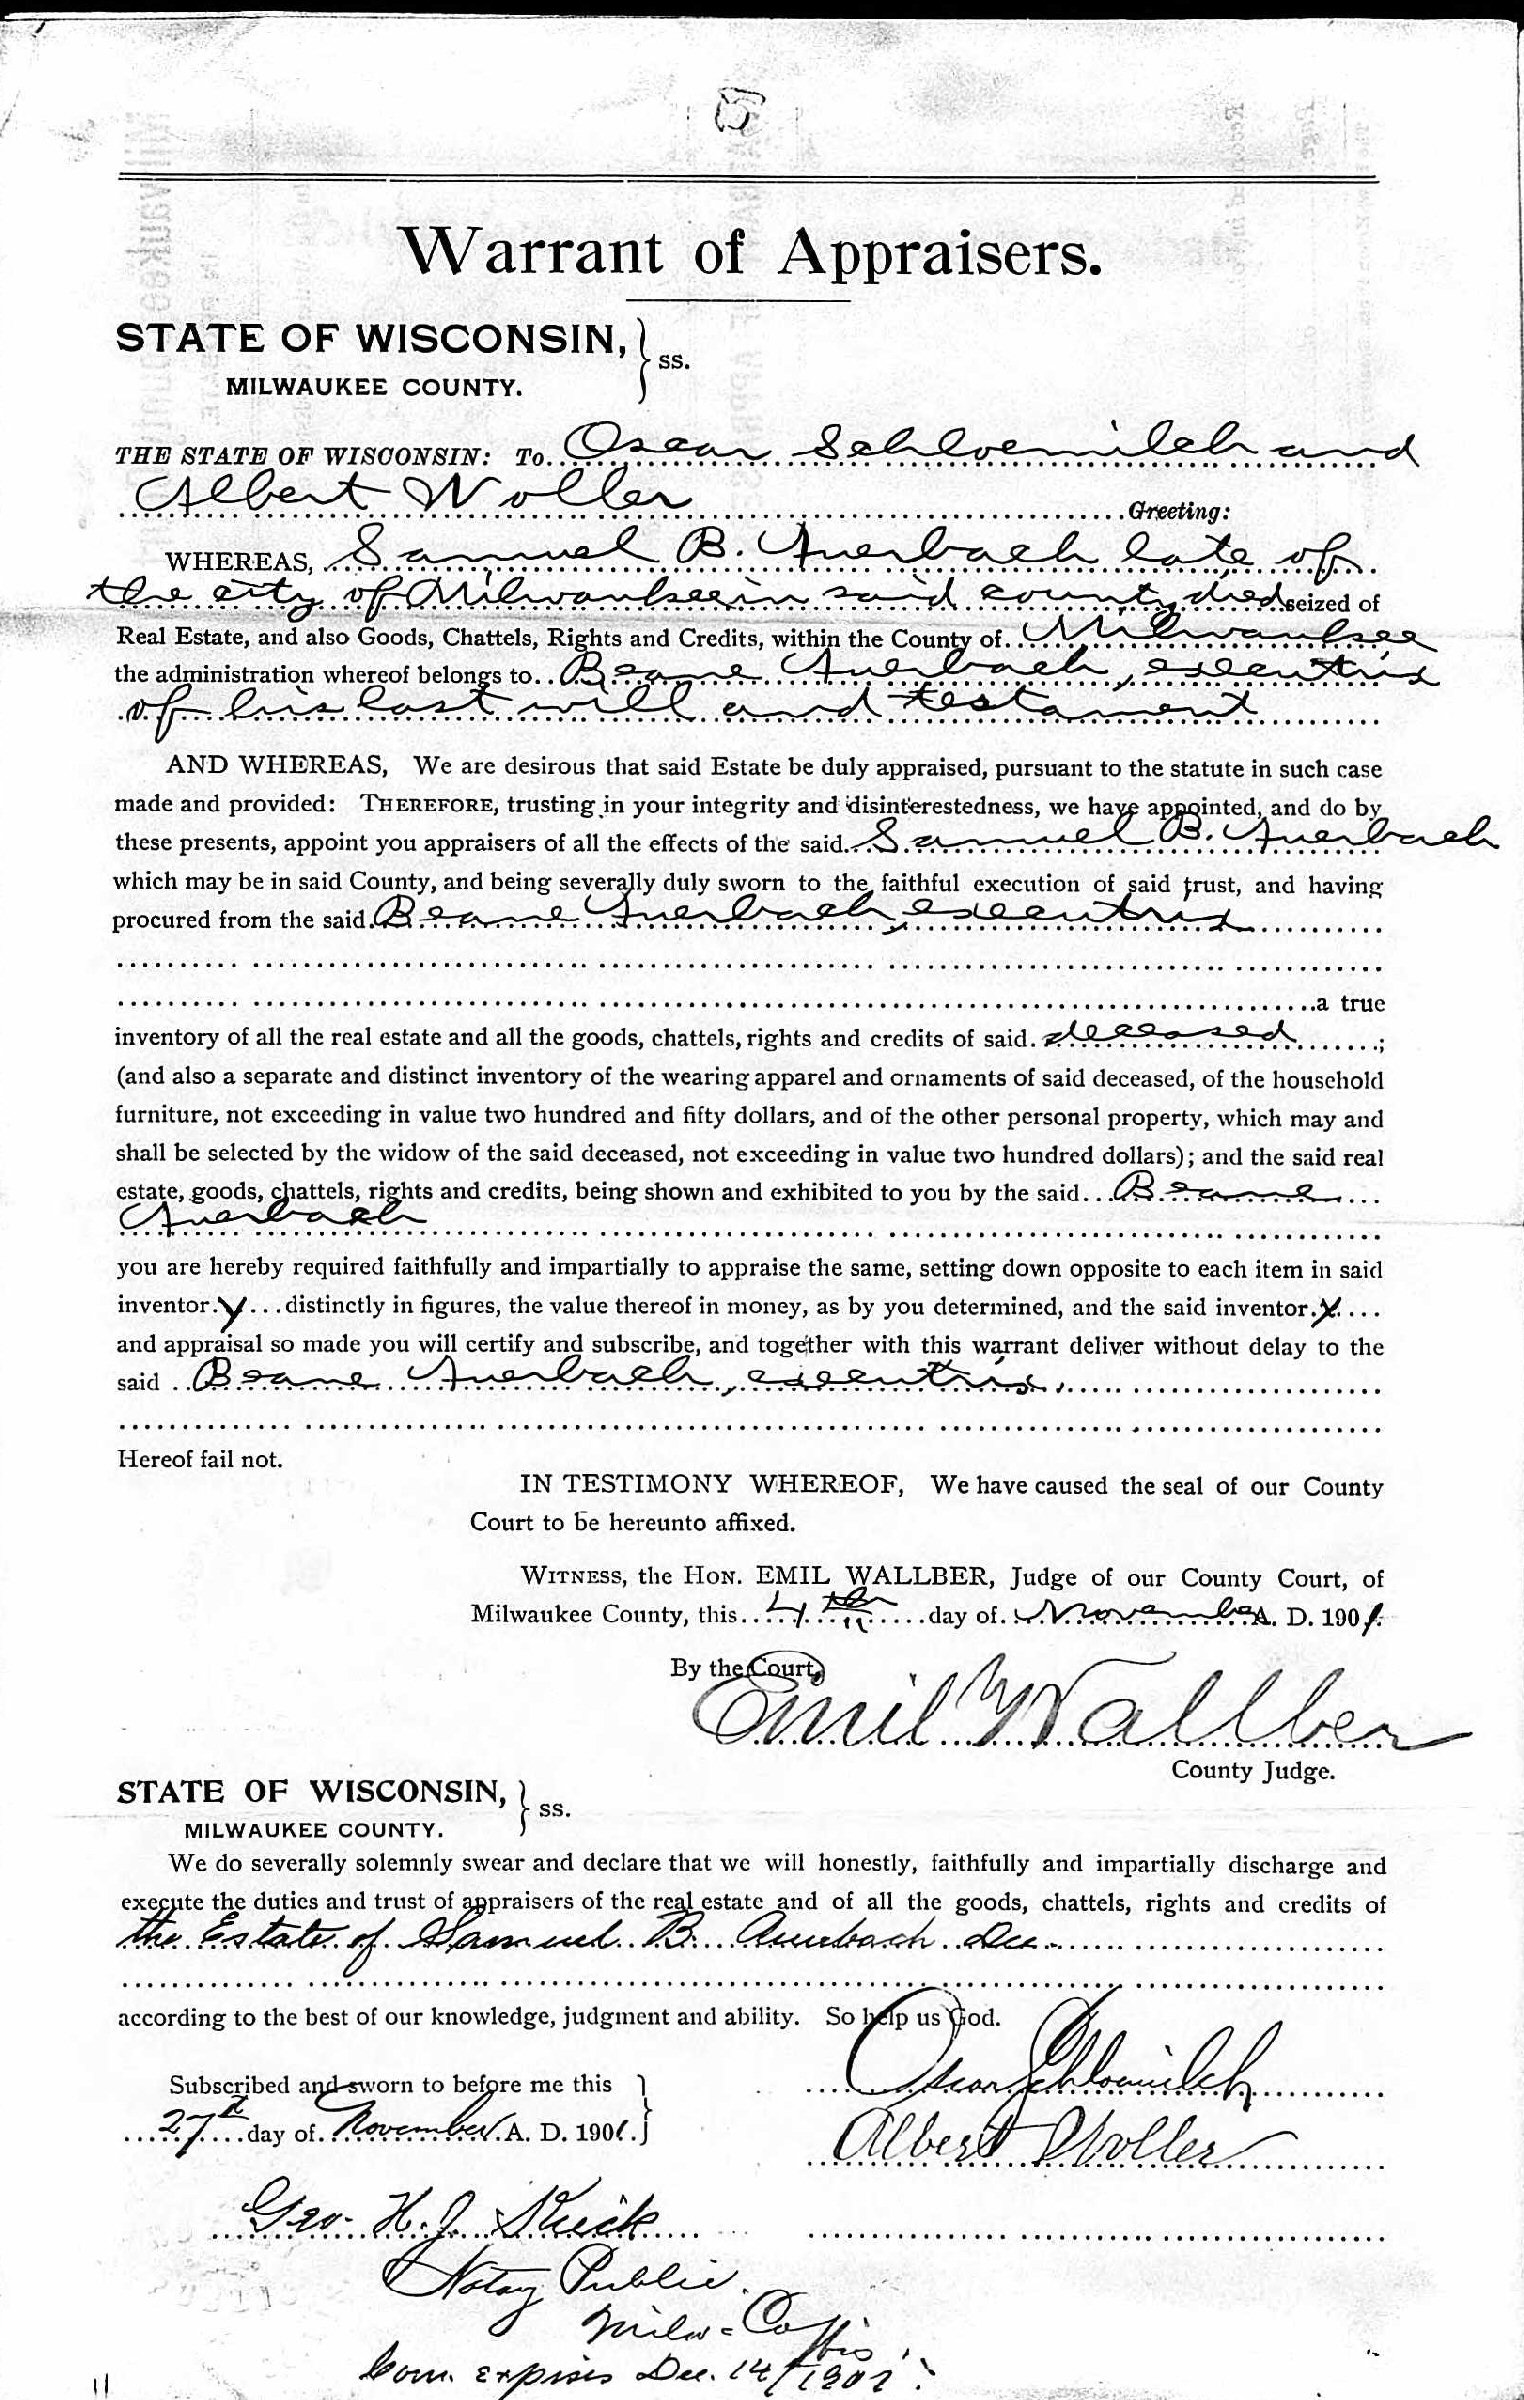 Warrant of Appraisers.
STATE OF WISCONSIN, } ss.
MILWAUKEE COUNTY.
THE STATE OF WISCONSIN: To Oscar Schloemilch and
Albert Woller Greeting:
WHEREAS, Samuel B. Auerbach late of
the city of Milwaukee in said county, died seized of
Real Estate, and also Goods, Chattels, Rights and Credits, within the County of Milwaukee
the administration whereof belongs to Beane Auerbach, executrix
of his last will and testament
AND WHEREAS, We are desirous that said Estate be duly appraised, pursuant to the statute in such case
made and provided: THEREFORE, trusting in your integrity and disinterestedness, we have appointed, and do by
these presents, appoint you appraisers of all the effects of the said Samuel B. Auerbach
which may be in said County, and being severally duly sworn to the faithful execution of said trust, and having
procured from the said Beane Auerbach, executrix
a true
inventory of all the real estate and all the goods, chattels, rights and credits of said deceased;
(and also a separate and distinct inventory of the wearing apparel and ornaments of said deceased, of the household
furniture, not exceeding in value two hundred and fifty dollars, and of the other personal property, which may and
shall be selected by the widow of the said deceased, not exceeding in value two hundred dollars); and the said real
estate, goods, chattels, rights and credits, being shown and exhibited to you by the said Beane
Auerbach
you are hereby required faithfully and impartially to appraise the same, setting down opposite to each item in said
inventory distinctly in figures, the value thereof in money, as by you determined, and the said inventory
and appraisal so made you will certify and subscribe, and together with this warrant deliver without delay to the
said Beane Auerbach, executrix.
Hereof fail not.
IN TESTIMONY WHEREOF, We have caused the seal of our County
Court to be hereunto affixed.
WITNESS, the HON. EMIL WALLBER, Judge of our County Court, of
Milwaukee County, this 4th day of November A. D. 1901.
By the Court,
Emil Wallber
County Judge.
STATE OF WISCONSIN, } ss.
MILWAUKEE COUNTY.
We do severally solemnly swear and declare that we will honestly, faithfully and impartially discharge and
execute the duties and trust of appraisers of the real estate and of all the goods, chattels, rights and credits of
the Estate of Samuel B. Auerbach Dec.
according to the best of our knowledge, judgment and ability. So help us God.
Oscar Schloemilch
Subscribed and sworn to before me this
27th day of November A. D. 1901.
Albert Woller
Geo. H. J.
Notary Public.
Milw. Co. Wis.
Com. expires Dec. 14/1902.
11